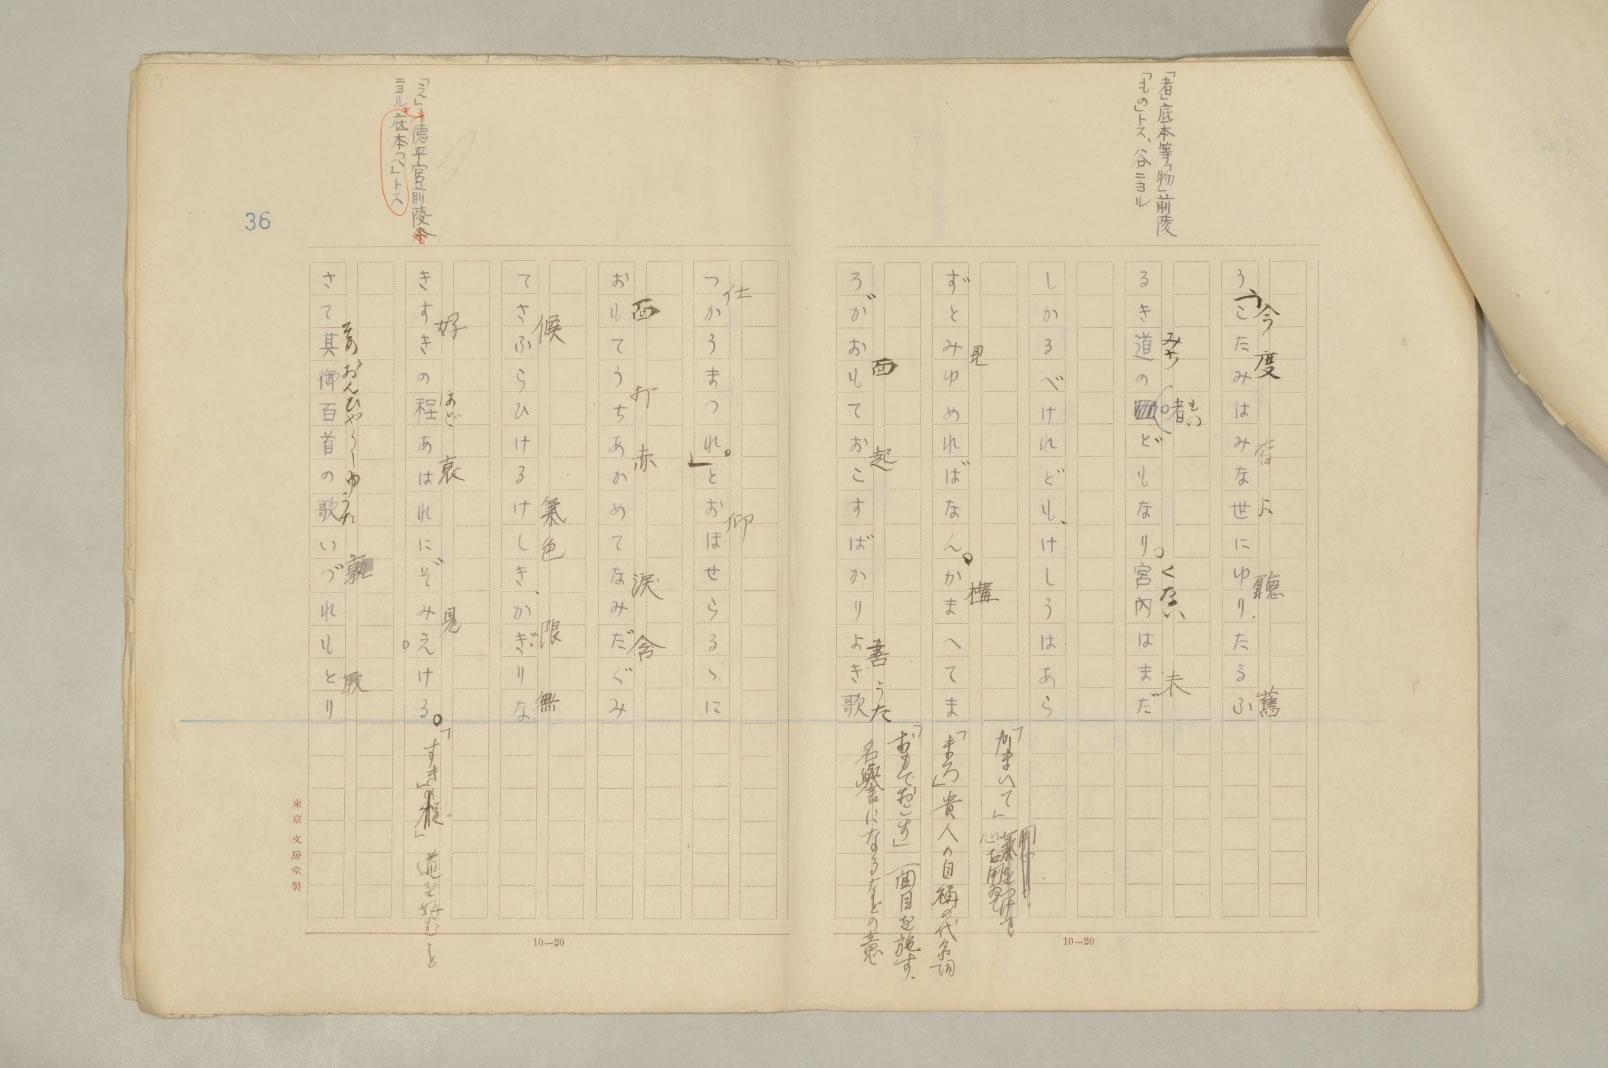 「者」底本等「物」前陵
「もの」トス、谷ニヨル
今度 皆 よ 聽 舊
うこたみはみな世にゆりたるふ
みち 者 くない 未
るき道のどもなり宮内はまだ
しかるべけれども、けしうはあら
見 構
ずとみゆめればなん。かまへてま
面 起 善 うた
ろがおもておこすばかりよき歌
「かまいて」
「まろ」貴人の自稱の代名詞
「おもておこす」(面目を施す、
名譽になるなどの意
仕 仰
つかうまつれ。」とおほせらるゝに
面 打 赤 淚 含
おもてうちあかめてなみだぐみ
候 氣色 限 無
てさふらひけるけしき、かぎりな
好 ほど 哀 見
きすきの程あはれにぞみえける。
「すきの程」道を好むと
その おんひやくしゆ うた 歌
さて其御百首の歌いづれもとり
「え」德平官前陵
ニヨル底本「へ」トス
36
10—20
10—20
東京 文房堂製